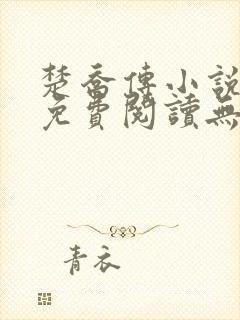 楚喬傳小說
免費閱讀無
青衣